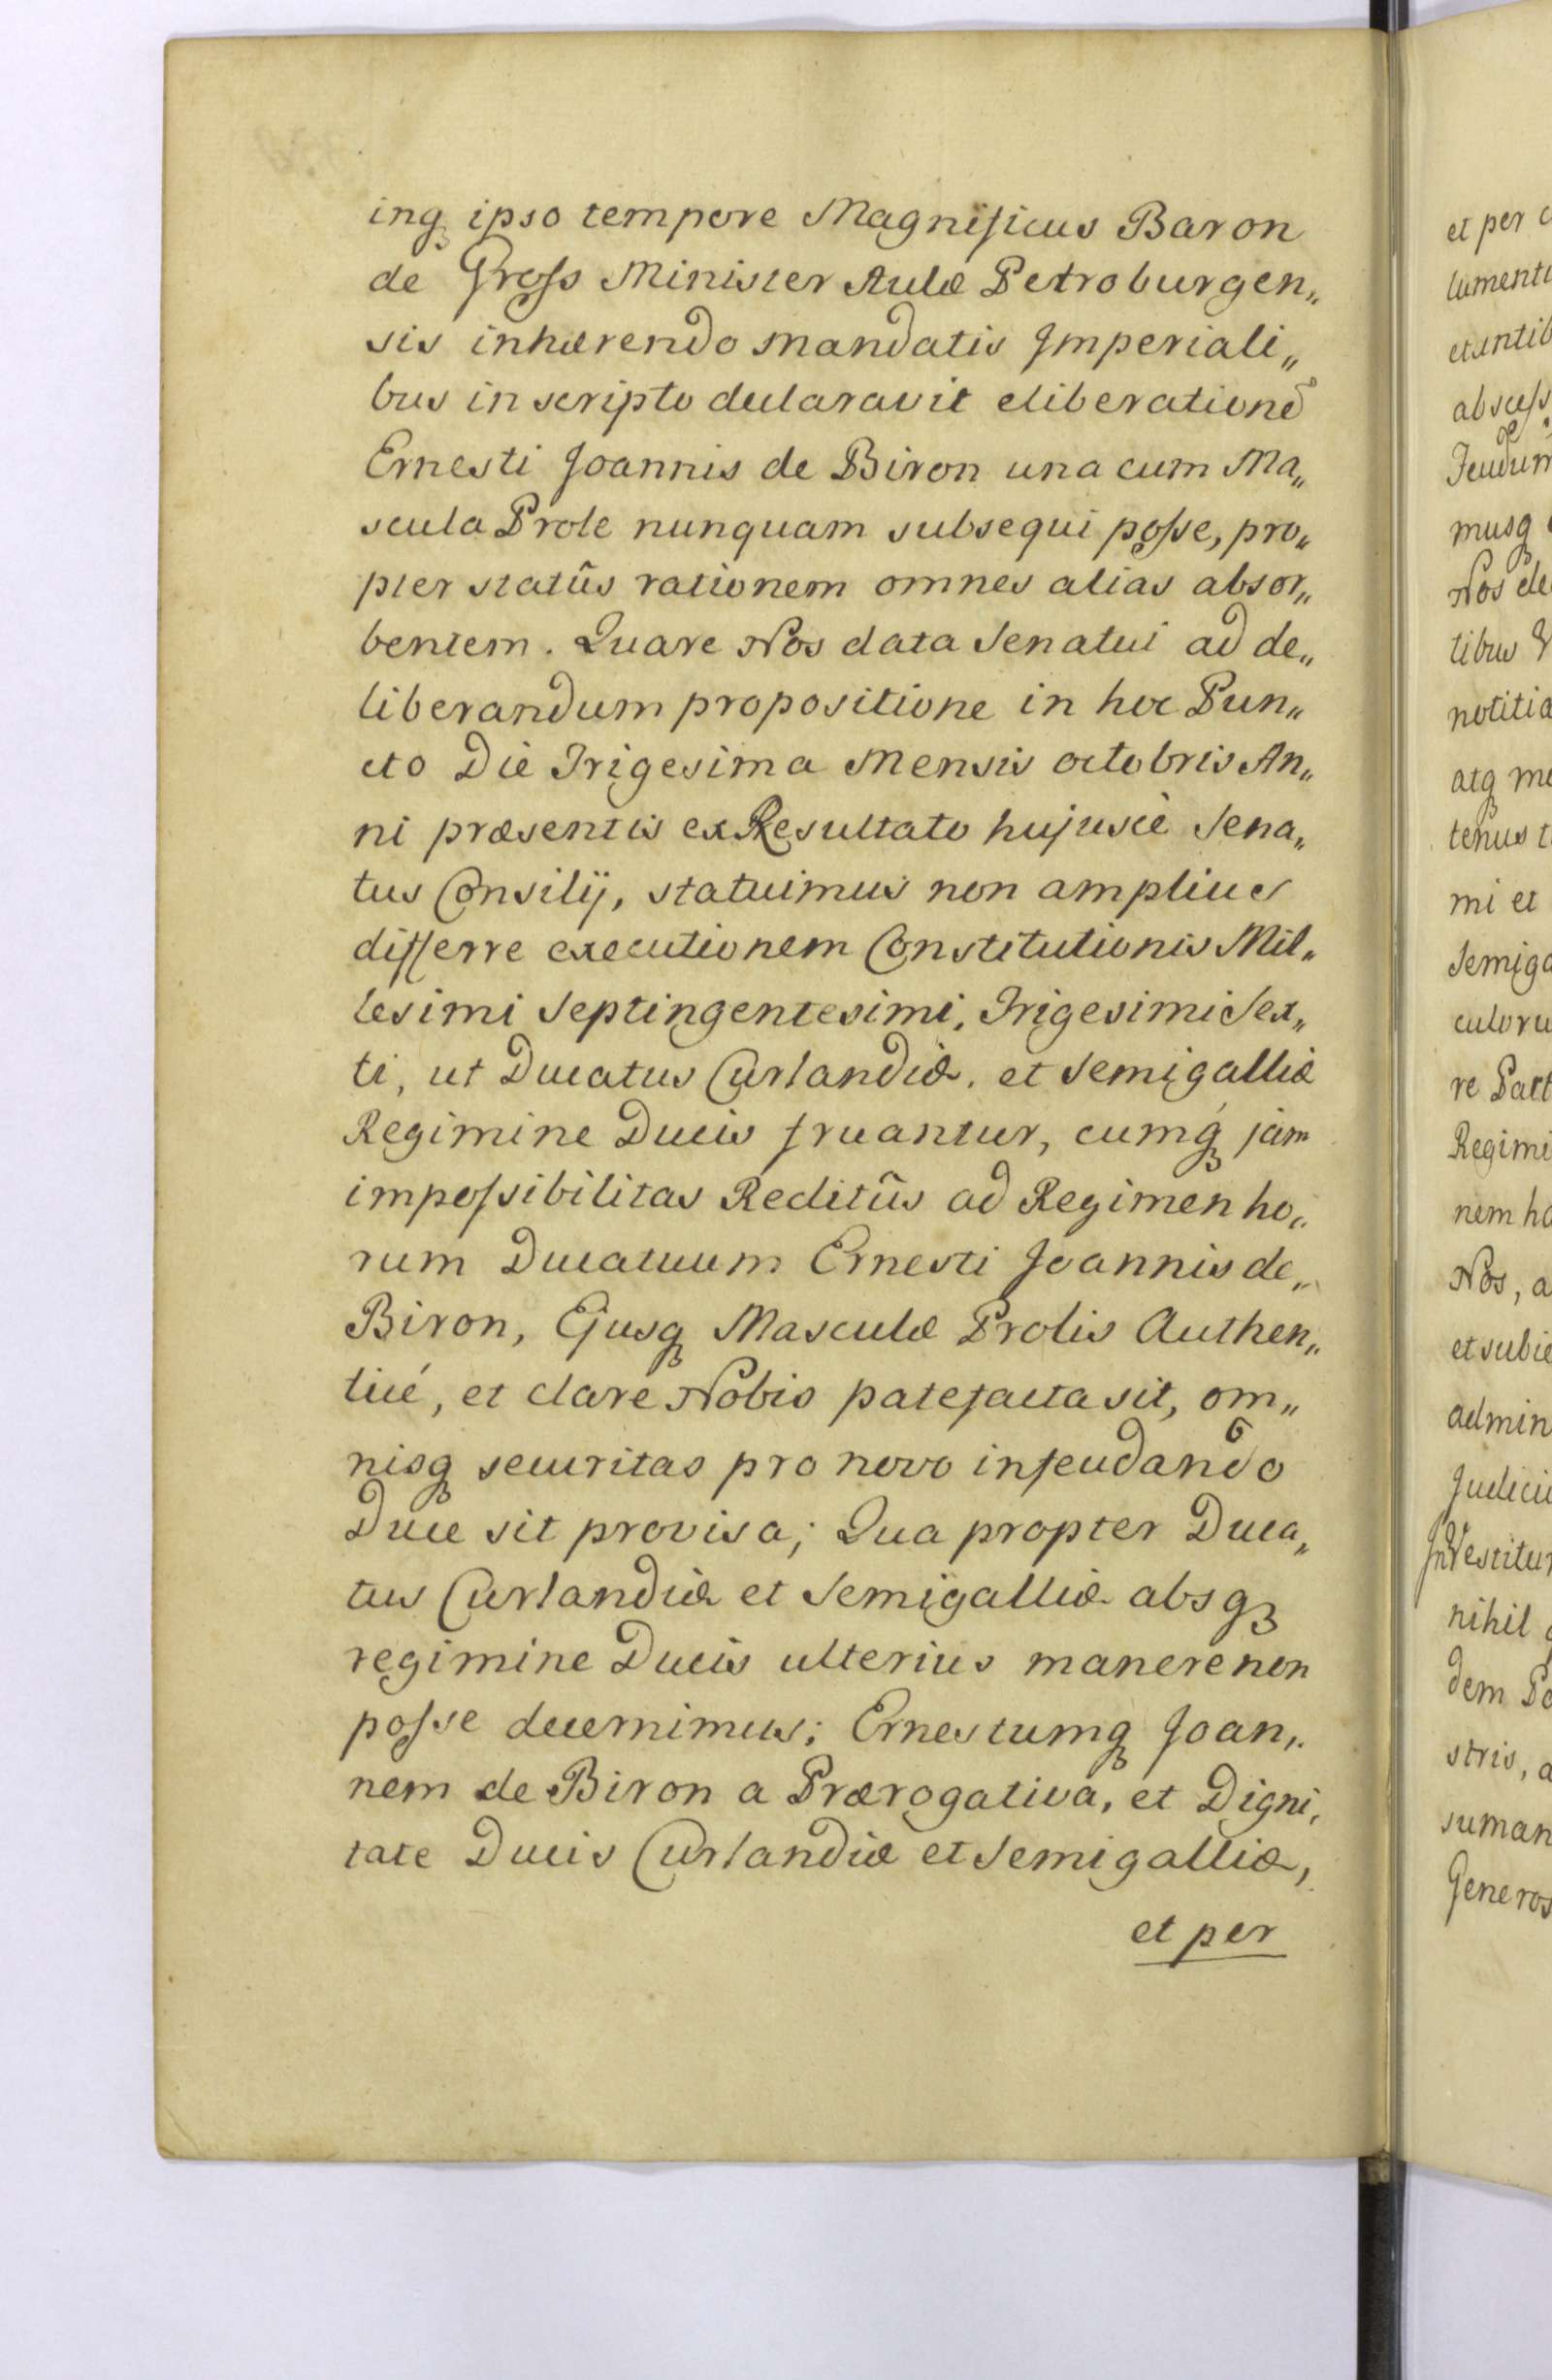 inq ipso tempore Magnificus Baron
de Gross Minister Aulæ Petroburgen„
sis inhærendo mandatis Imperiali„
bus in scripto declaravit eliberationē
Ernesti Joannis de Biron una cum Ma„
scula Prole nunquam subsequi posse, pro„
pter statûs rationem omnes alias absor„
bentem. Quare Nos data Senatui ad de„
liberandum propositione in hoc Pun„
cto Die Trigesima Mensis octobris An„
ni præsentis ex Resultato hujusce Sena„
tus Consilij, statuimus non amplius
differre executionem Constitutionis Mil„
lesimi Septingentesimi, Trigesimi Sex„
ti, ut Ducatus Curlandiæ. et Semigalliæ
Regimine Ducis fruantur, cumq́ jam
impossibilitas Reditûs ad Regimen ho„
rum Ducatuum Ernesti Joannis de„
Biron, Ejusq Masculæ Prolis Authen„
ticé, et claré Nobis patefacta sit, om„
nisq securitas pro novo infeudando
Duce sit provisa; Qua propter Duca„
tus Curlandiæ et Semigalliæ absq
regimine Ducis ulterius manere non
posse decernimus; Ernestumq Joan„
nem de Biron a Prærogativa, et Digni„
tate Ducis Curlandiæ et Semigalliæ,
et per
et per
lumenti
et antib
abscess
Feudum
musq
Nos ele
tibus
notitia
atq me
tenus t
mi et
Semiga
culoru
re Pact
Regimi
nem ho
Nos, a
et subie
admin
Judicii
Investitur
nihil
dem Po
stris, a
suman
Generos